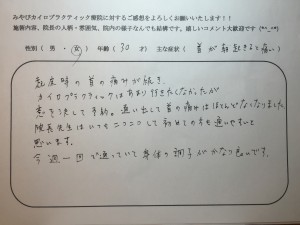 みやびカイロプラクティック療院に対するご感想をよろしくお願いいたします!!
施術内容、院長の人柄・雰囲気、院内の様子なんでも結構です。嬉しいコメント大歓迎です (*^_^*)
性別 ( 男 ・ 女 ) 年齢 ( 30 才 ) 主な症状 ( 首が朝起きると痛い )
起床時の首の痛みが続き、
カイロプラクティックはあまり行きたくなかったが
意を決して予約。通い出して首の痛みはほとんどなくなりました
院長先生はいつもニコニコして初めての方も通いやすいと
思います。
今週一回で通っていて身体の調子がかなり良いです。